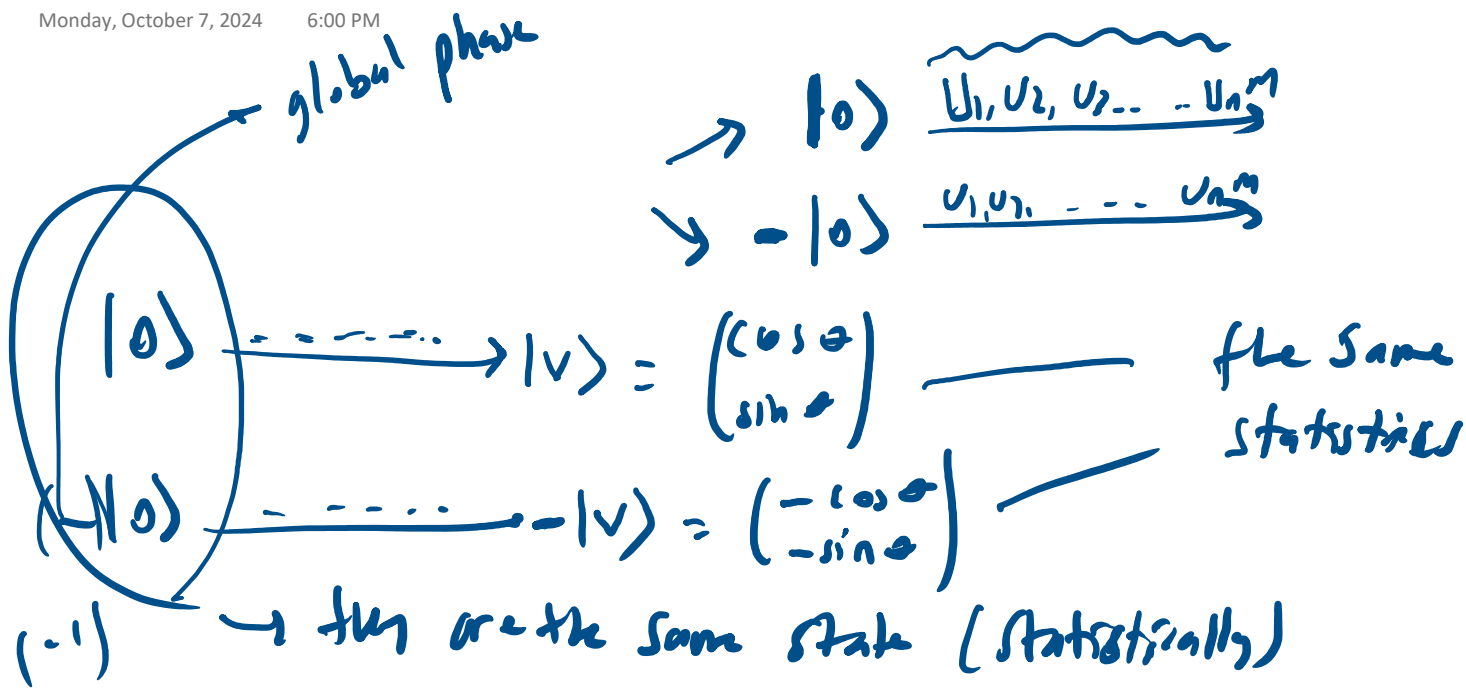 Monday, October 7, 2024 6:00 PM
global phase
|0⟩ U1, U2, U3... .. Un M
-|0⟩ U1, U2. - - - - Un M
|0⟩ ------ → |v⟩ = (cos θ
sin θ)
the same
statistics
(-)|0⟩ ----- → -|v⟩ = (-cos θ
-sin θ)
(-1) → they are the same state (statistically)